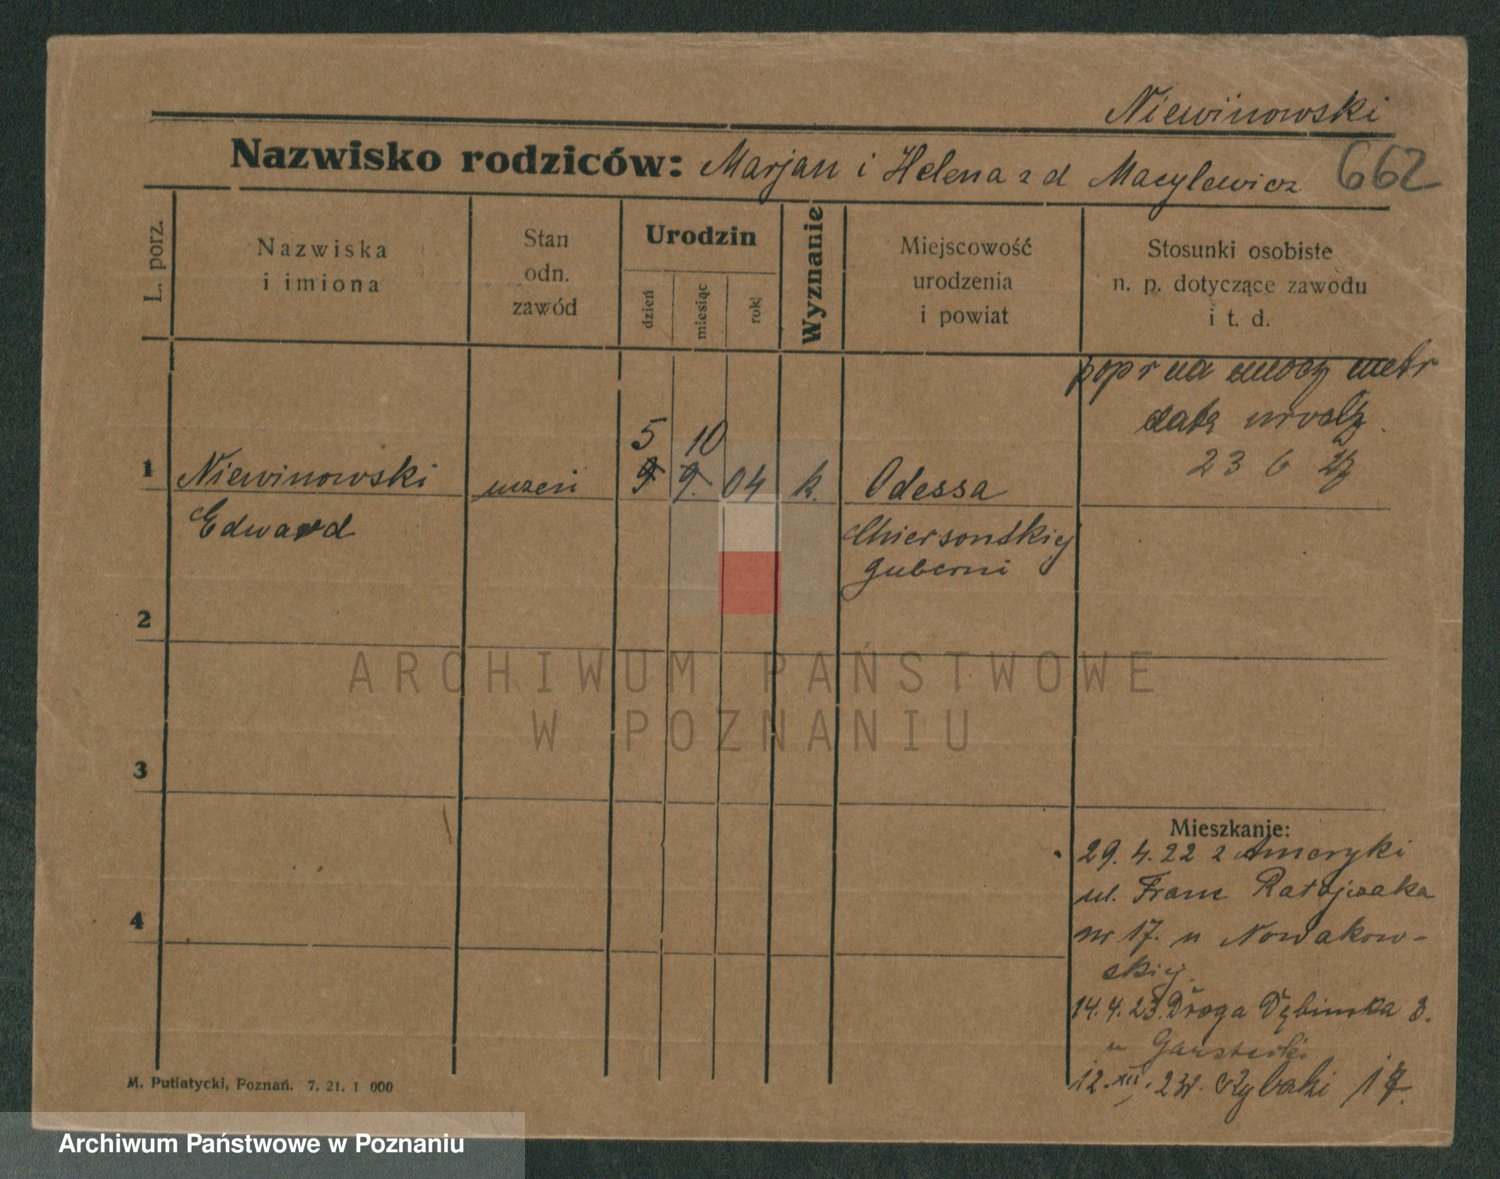 Niewinowski
Nazwisko rodziców: Marjan i Helena z d Macylewicz
662
L. porz.
Nazwiska
i imiona
Stan
odn.
zawód
Urodzin
dzień
miesiąc
rok
Wyznanie
Miejscowość
urodzenia
i powiat
Stosunki osobiste
n. p. dotyczące zawodu
i t. d.
popr na mocy metr
datę urodz.
23 6
5 10
1 Niewinowski uczeń 9 9. 04 k. Odessa
Edward Chiersonskiej
guberni
2
3
4
Mieszkanie:
29. 4. 22 z Ameryki
ul. Franc Ratajczaka
nr 17. u Nowakow-
skiej.
14. 4. 23. Droga Dębinska 3.
u
12. XII. Rybaki
M. Putiatycki, Poznań. 7. 21. 1 000
ARCHIWUM PAŃSTWOWE
W POZNANIU
Archiwum Państwowe w Poznaniu